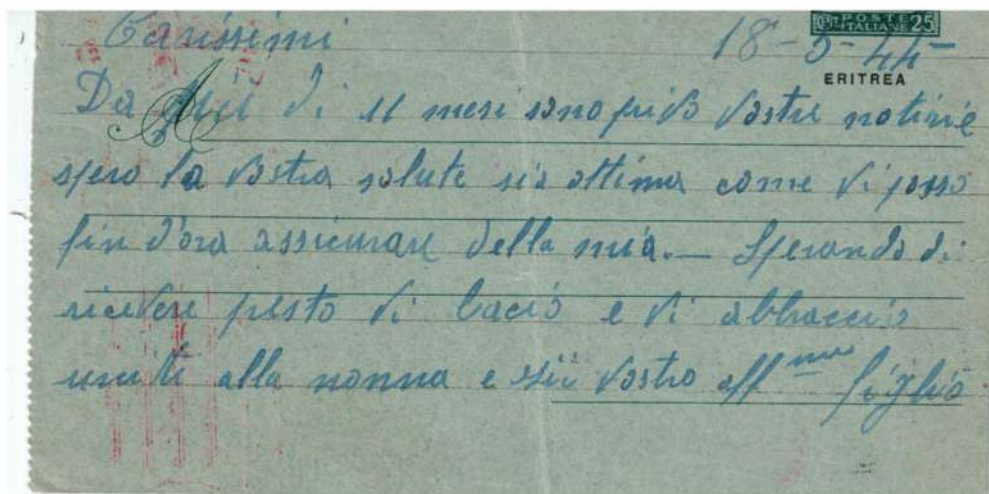 Carissimi
18-5-44-
POSTE ITALIANE 25
ERITREA
Da più di 11 mesi sono privo vostre notizie
spero la vostra salute sia ottima come vi posso
fin d'ora assicurare della mia. — Sperando di
ricevere presto vi bacio e vi abbraccio
uniti alla nonna e zii vostro aff mo figlio